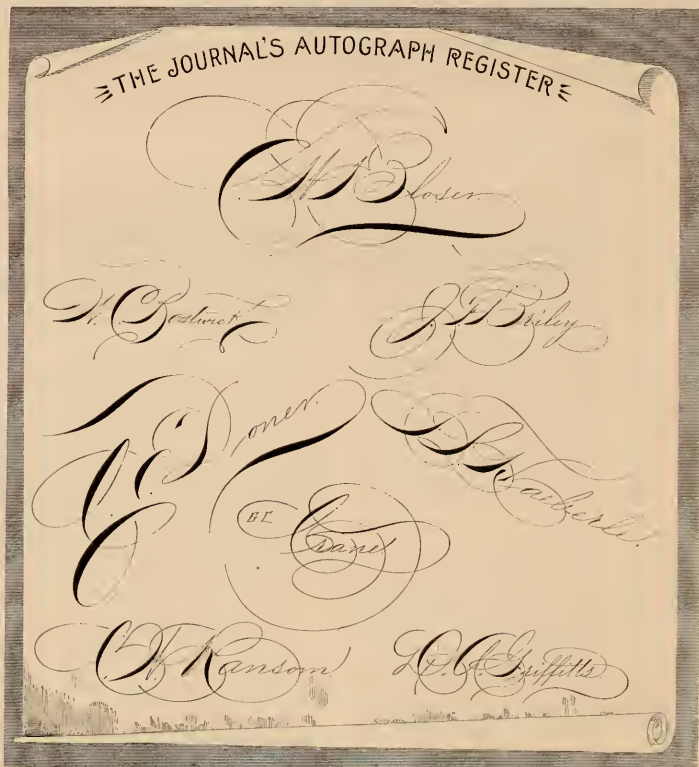 THE JOURNAL'S AUTOGRAPH REGISTER
Bloser
W. C. Bostwick
J. F. Briley
J. E. Doner
G E Crane
C. W. Ransom
D. A. Griffitts